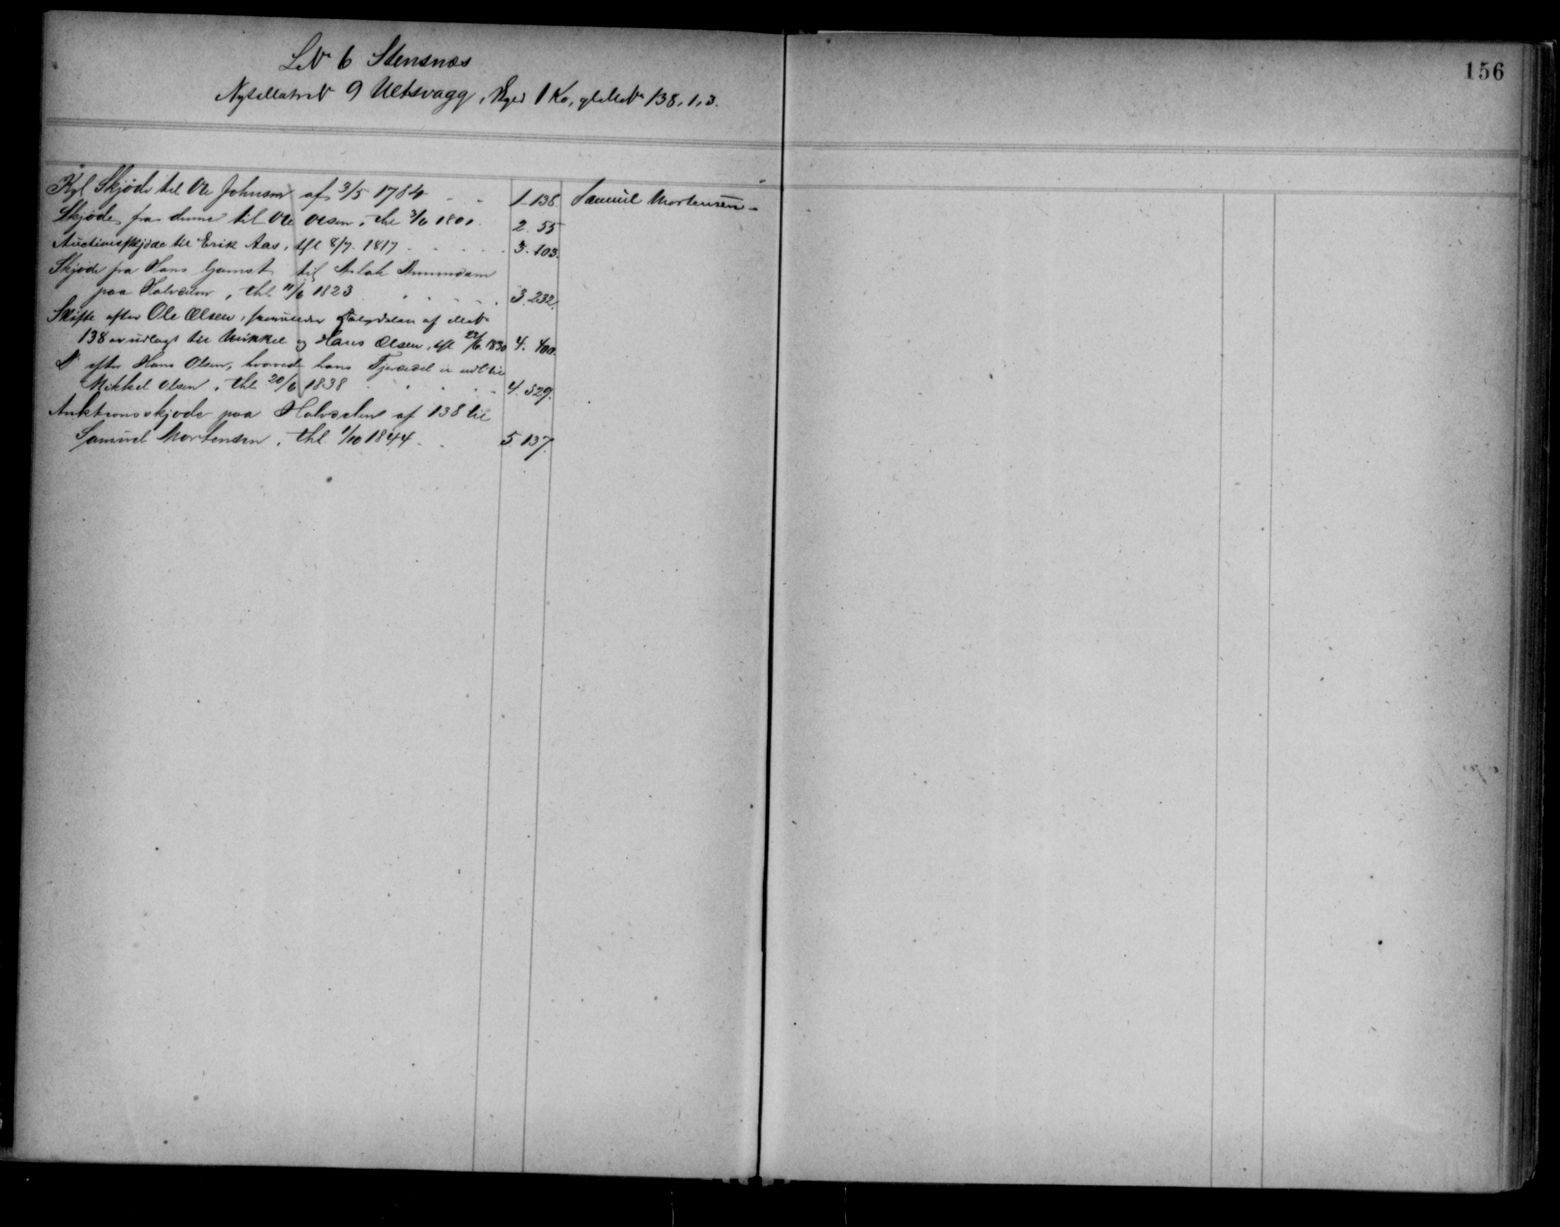 156
L.№ 6 Stensnæs
Nyt Matr№ 9 Uetsvagg, Skyld 1 Ko, gl. M.№ 138, 1, 3.
Kgl Skjøde til Ole Johnsen af 3/5 1784 1. 136 Samuel Mortensen
Skjøde fra denne til Ole Olsen, thl 1801. 2. 55
Auctionsskjøde til Erik Aas, thl 8/7. 1817 3. 103.
Skjøde fra Hans Gamst til Aslak Amundsen
paa Halvdelen, thl. 11/6 1823 3. 232.
Skifte efter Ole Olsen, hvorunder Halvdelen af M№
138 er udlagt til Mikkel og Hans Olsen, thl 22/6 1830 4. 400.
D° efter Hans Olsen, hvorved hans Fjerdedel er udl. til
Mikkel Olsen, thl 20/6 1838 4. 529.
Auktionsskjøde paa Halvdelen af 138 til
Samuel Mortensen, thl 1/10 1844 5. 137.